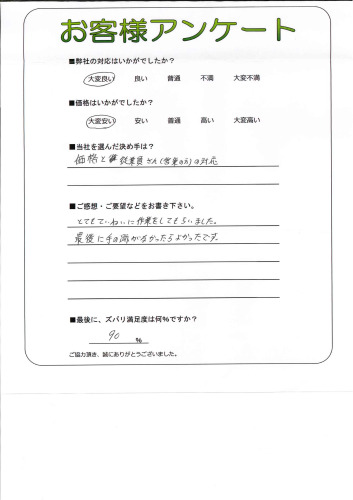 お客様アンケート
■弊社の対応はいかがでしたか？
大変良い 良い 普通 不満 大変不満
■価格はいかがでしたか？
大変安い 安い 普通 高い 大変高い
■当社を選んだ決め手は？
価格と従業員さん(営業の方)の対応
■ご感想・ご要望などをお書き下さい。
とてもていねいに作業をしてもらいました。
最後に手の
がなかったらよかったです。
■最後に、ズバリ満足度は何%ですか？
90 %
ご協力頂き、誠にありがとうございました。